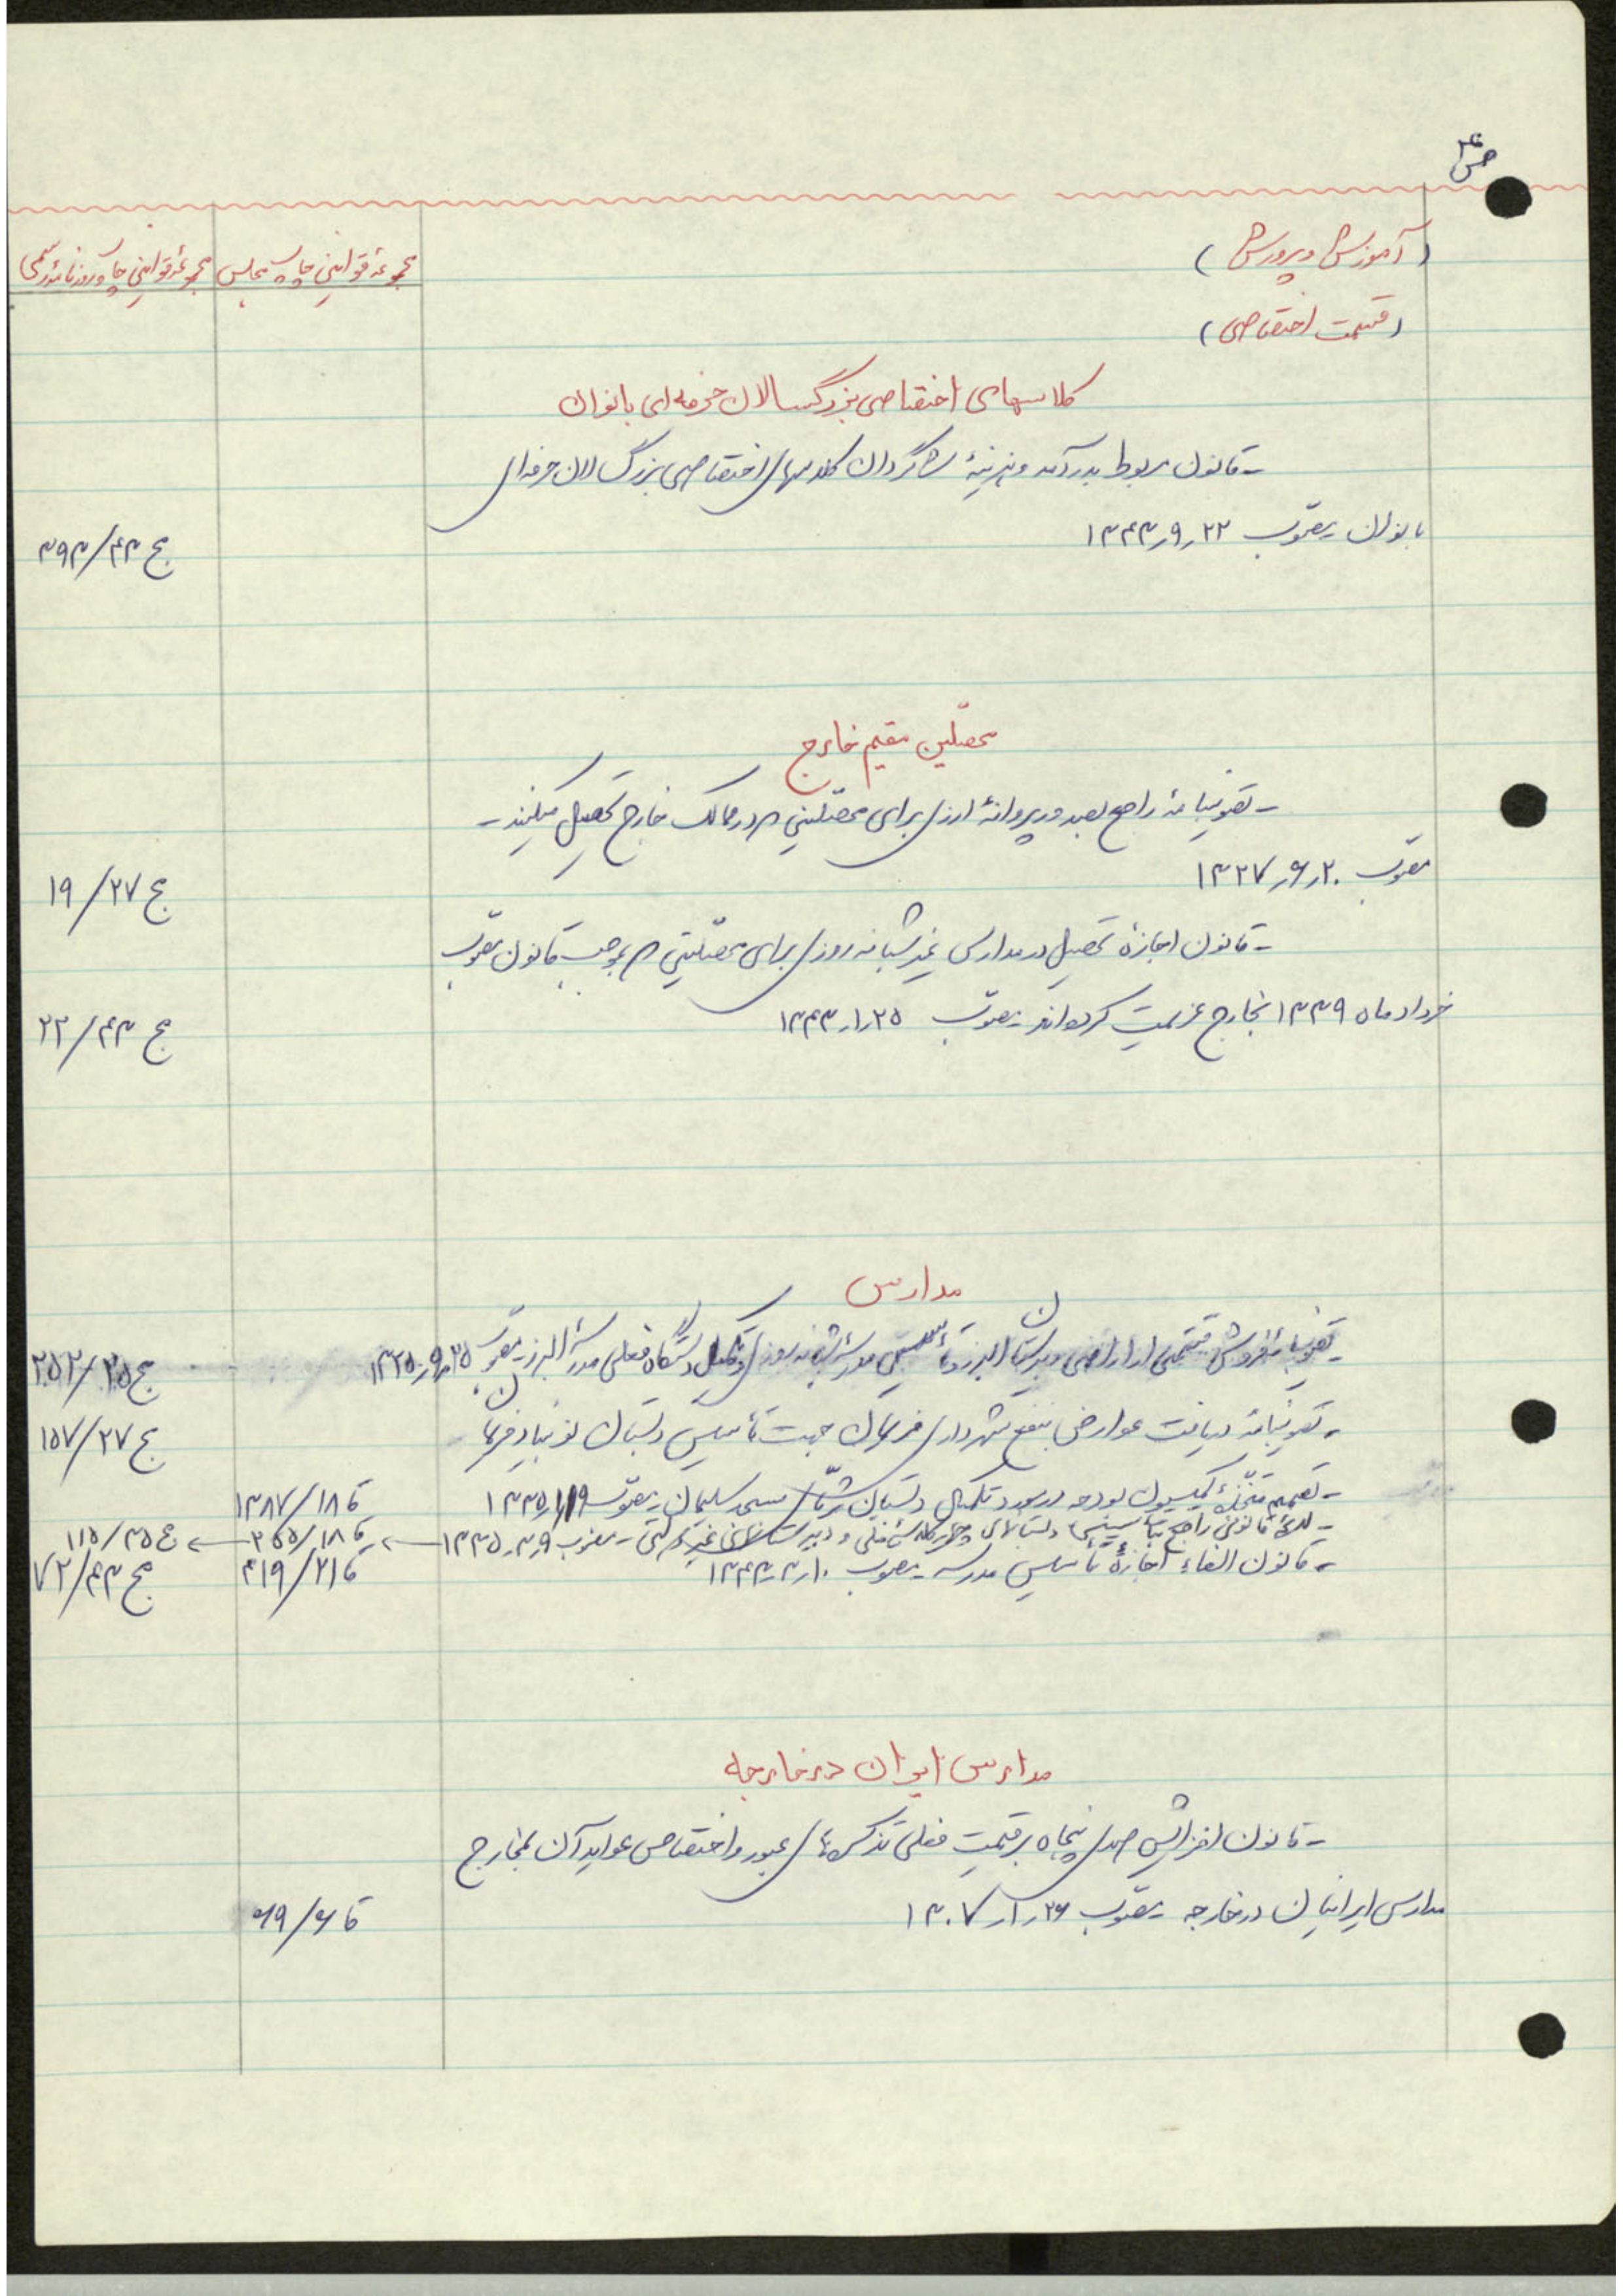 ص ۴
(آموزش و پرورش)
مجموعهٔ قوانین چاپ مجلس
مجموعهٔ قوانین چاپ روزنامهٔ رسمی
(قسمت اختصاصی)
کلاسهای اختصاصی بزرگسالان حرفه‌ای بانوان
- قانون مربوط بدرآمد و هزینهٔ شاگردان کلاسهای اختصاصی بزرگسالان حرفه‌ای
بانوان - مصوّب ۲۲ر۹ر۱۳۴۳
مج ۴۳/۳۹۳
محصّلین مقیم خارج
- تصویبنامهٔ راجع بصدور پروانهٔ ارزی برای محصّلینی که در ممالک خارج تحصیل میکنند -
مصوّب ۲۰ر۶ر۱۳۲۷
مج ۲۷/۱۹
- قانون اجازهٔ تحصیل در مدارس غیر شبانه روزی برای محصّلینی که بموجب قانون مصوّب
خرداد ماه ۱۳۳۹ بخارج عزیمت کرده‌اند - مصوّب ۲۵ر۱ر۱۳۴۳
مج ۴۳/۲۲
مدارس
- تصویبنامهٔ فروش قسمتی از اراضی دبیرستان البرز و تأسیس مدرسهٔ شبانه روزی و تکمیل دستگاه فعلی مدرسهٔ البرز - مصوّب ۲۵ر۹ر۱۳۲۵
مج ۲۵/۲۵۲
- تصویبنامهٔ دریافت عوارض بنفع شهرداری فریمان جهت تأسیس دبستان نوبنیاد فریمان
مج ۲۷/۱۵۷
- تصمیم متّخذهٔ کمیسیون بودجه در مورد تکمیل دبستان مسجد سلیمان - مصوّب ۱۹ر۱ر۱۳۳۵
قا ۱۸/۱۳۸۷
- لایحهٔ قانونی راجع بتأسیس دبستانهای چهار کلاسهٔ فنی و دبیرستانهای غیر دولتی - مصوب ۹ر۳ر۱۳۳۵
قا ۱۸/۳۶۵
مج ۳۵/۱۱۵
- قانون الغاء اجازهٔ تأسیس مدرسه - مصوب ۱۰ر۳ر۱۳۴۳
قا ۲۱/۴۱۹
مج ۴۳/۷۲
مدارس ایران در خارجه
- قانون افزایش صدی پنجاه بر قیمت فعلی تذکره‌های عبور و اختصاص عواید آن بمخارج
مدارس ایرانیان در خارجه - مصوّب ۲۶ر۱ر۱۳۰۷
قا ۶/۶۹